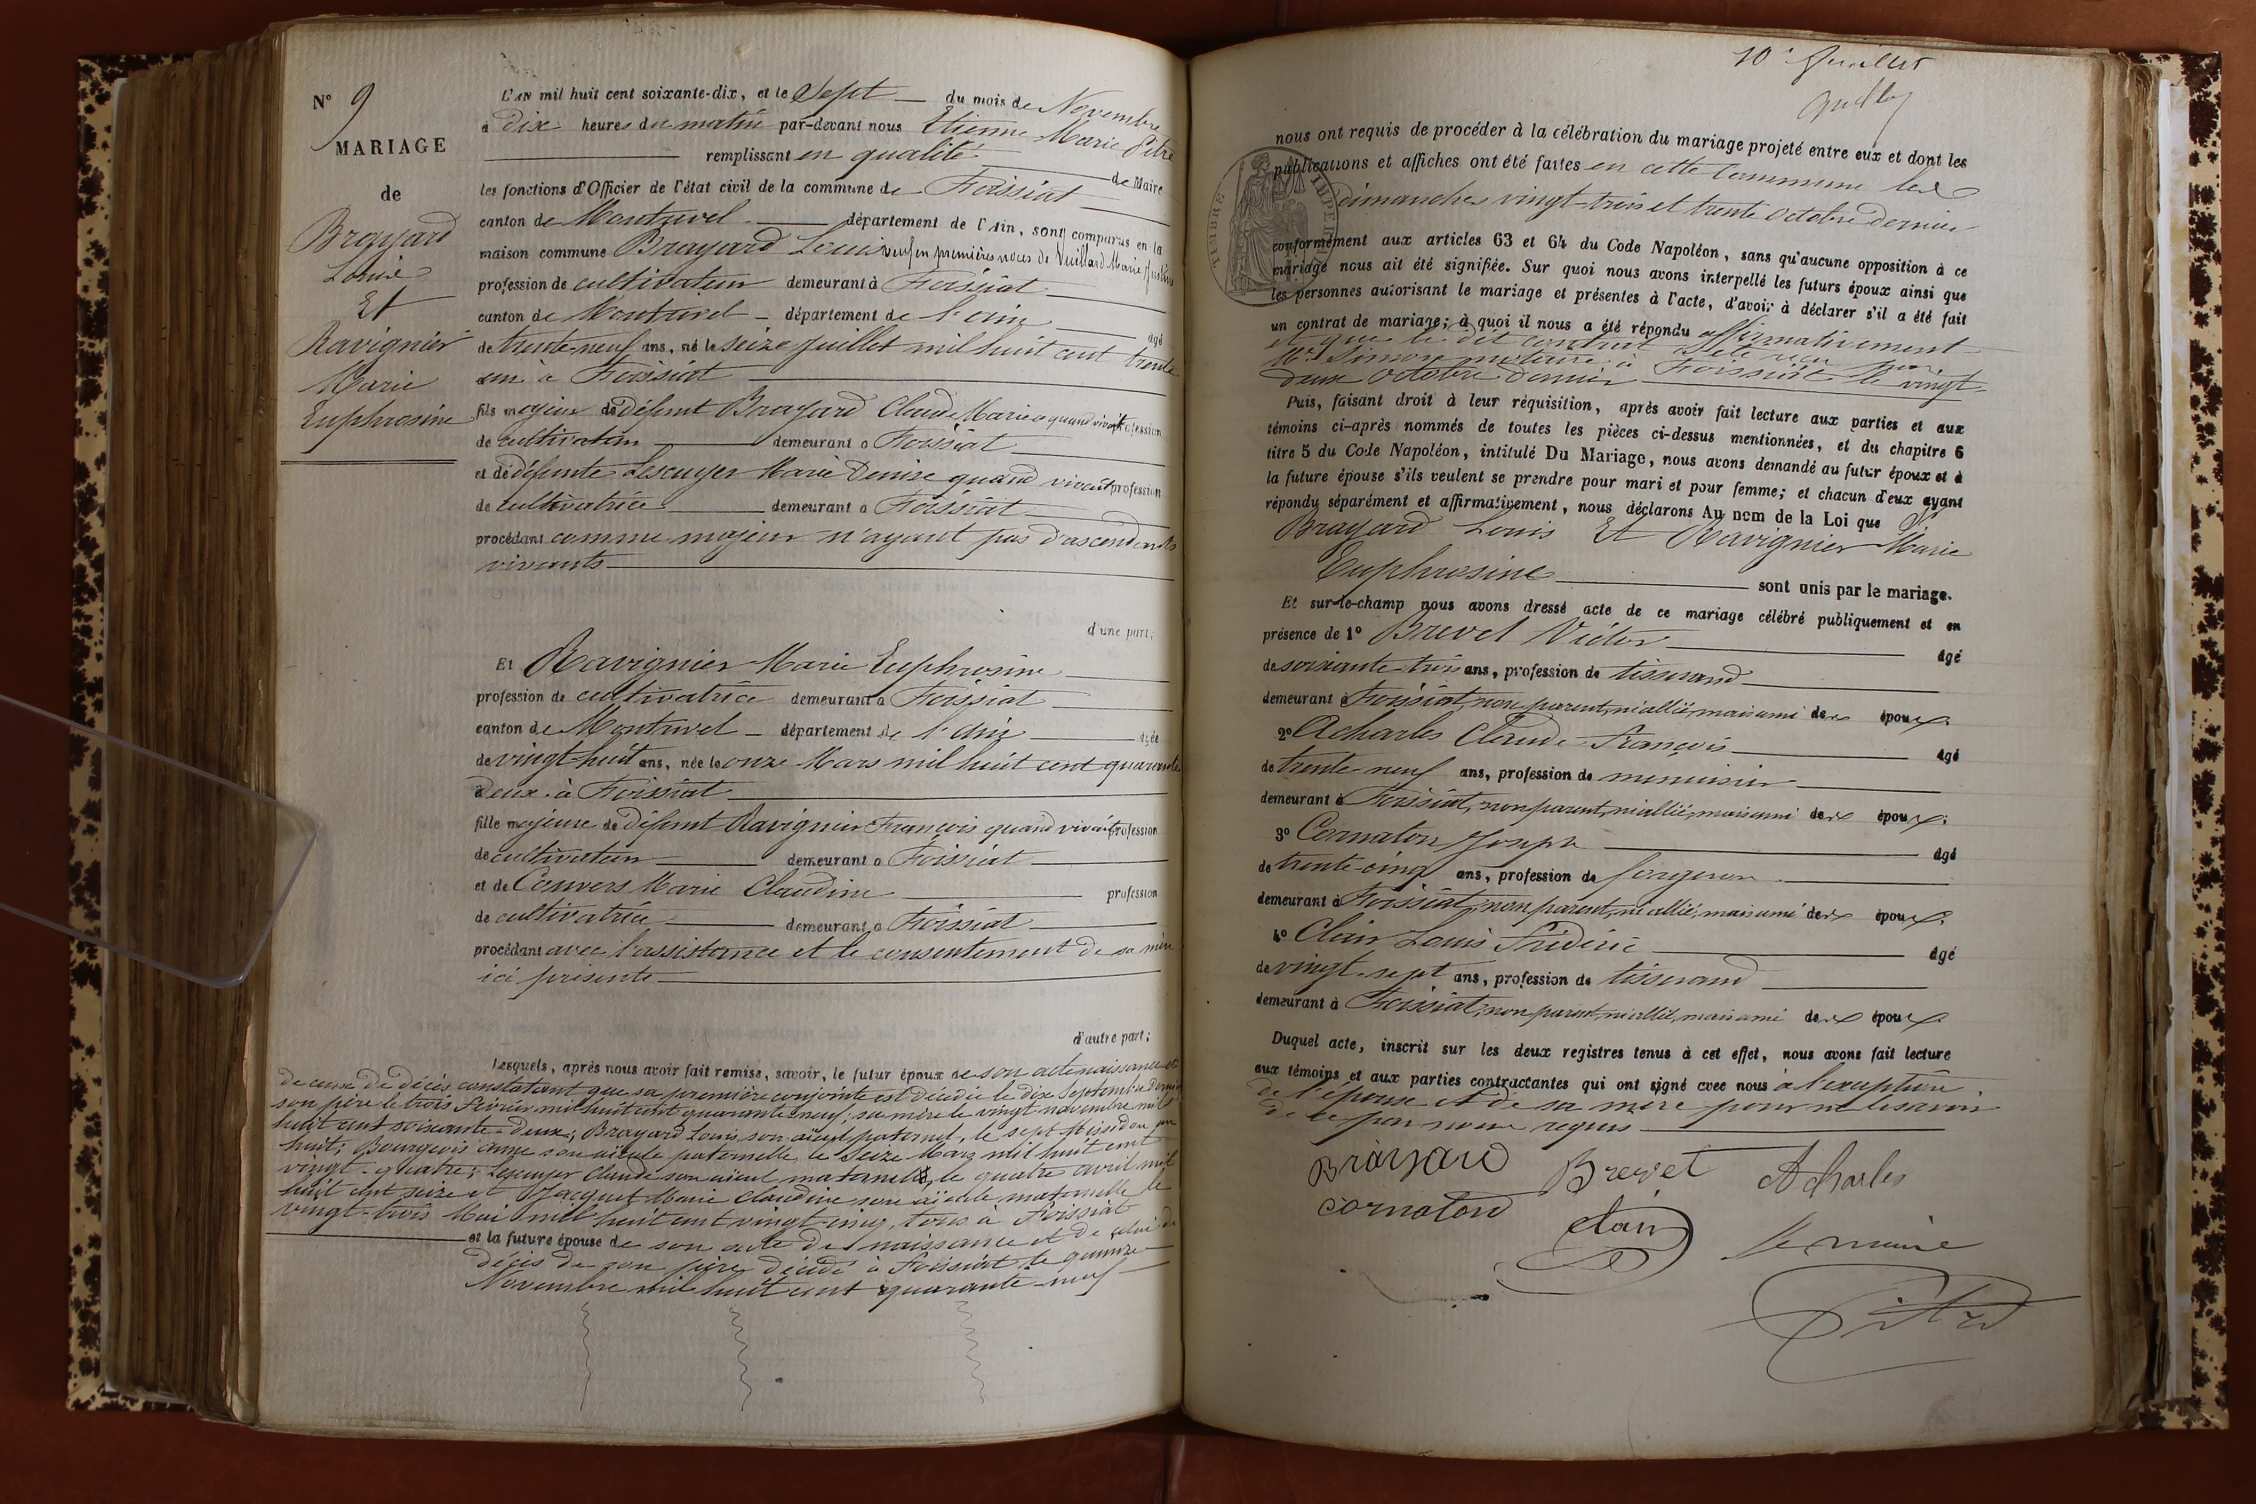 N° 9
MARIAGE
de
Brayard
Louis
Et
Ravignier
Marie
Euphrosine
L'AN mil huit cent soixante-dix, et le Sept du mois de Novembre
à dix heures du matin par-devant nous Etienne Marie Pitre
remplissant en qualité de Maire
les fonctions d'Officier de l'état civil de la commune de Foissiat
canton de Montrevel département de l'Ain, sont comparus en la
maison commune Brayard Louis veuf en premières noces de Vuillard Marie Justine
profession de cultivateur demeurant à Foissiat
canton de Montrevel département de l'ain âgé
de trente-neuf ans, né le seize Juillet mil huit cent trente
un à Foissiat
fils majeur de défunt Brayard Claude Marie quand vivait profession
de cultivateur demeurant à Foissiat
et de défunte Lescuyer Marie Denise quand vivait profession
de cultivatrice demeurant à Foissiat
procédant comme majeur n'ayant pas d'ascendants
vivants
d'une part;
Et Ravignier Marie Euphrosine
profession de cultivatrice demeurant à Foissiat
canton de Montrevel département de l'Ain âgée
de vingt-huit ans, née le onze Mars mil huit cent quarante
deux à Foissiat
fille majeure de défunt Ravignier François quand vivait profession
de cultivateur demeurant à Foissiat
et de Convers Marie Claudine profession
de cultivatrice demeurant à Foissiat
procédant avec l'assistance et le consentement de sa mère
ici présente
d'autre part;
Lesquels, après nous avoir fait remise, savoir, le futur époux de son acte naissance et
de ceux de décès constatant que sa première conjointe est décédée le dix Septembre dernier
son père le trois Février mil huit cent quarante neuf; sa mère le vingt novembre mil
huit cent soixante-deux; Brayard Louis, son aïeul paternel, le sept
huit; Bourgeois Anne son aïeule paternelle le Seize Mars mil huit cent
vingt-quatre; Lescuyer Claude son aïeul maternel, le quatre avril mil
huit cent seize et Jacquet Marie Claudine son aïeule maternelle le
vingt-trois Mai mil huit cent vingt-cinq, tous à Foissiat
et la future épouse de son acte de naissance et de celui de
décès de son père décédé à Foissiat le quinze
Novembre mil huit cent quarante-neuf
10e
nous ont requis de procéder à la célébration du mariage projeté entre eux et dont les
publications et affiches ont été faites en cette Commune les
dimanches vingt-trois et trente octobre dernier
conformément aux articles 63 et 64 du Code Napoléon, sans qu'aucune opposition à ce
mariage nous ait été signifiée. Sur quoi nous avons interpellé les futurs époux ainsi que
les personnes autorisant le mariage et présentes à l'acte, d'avoir à déclarer s'il a été fait
un contrat de mariage; à quoi il nous a été répondu affirmativement
et que le dit contrat a été reçu par
Me Simon notaire à Foissiat le vingt-
deux Octobre dernier
Puis, faisant droit à leur réquisition, après avoir fait lecture aux parties et aux
témoins ci-après nommés de toutes les pièces ci-dessus mentionnées, et du chapitre 6
titre 5 du Code Napoléon, intitulé Du Mariage, nous avons demandé au futur époux et à
la future épouse s'ils veulent se prendre pour mari et pour femme; et chacun d'eux ayant
répondu séparément et affirmativement, nous déclarons Au nom de la Loi que
Brayard Louis Et Ravignier Marie
Euphrosine sont unis par le mariage.
Et sur-le-champ nous avons dressé acte de ce mariage célébré publiquement et en
présence de 1° Brevet Victor âgé
de soixante-trois ans, profession de tisserand
demeurant à Foissiat, non parent, ni allié, mais ami des époux.
2° Acharles Claude François âgé
de trente-neuf ans, profession de menuisier
demeurant à Foissiat, non parent, ni allié, mais ami des époux;
3° Cornaton Joseph âgé
de trente-cinq ans, profession de forgeron
demeurant à Foissiat, non parent, ni allié, mais ami des époux.
4° Clair Louis Frédéric âgé
de vingt-sept ans, profession de tisserand
demeurant à Foissiat, non parent, ni allié, mais ami des époux.
Duquel acte, inscrit sur les deux registres tenus à cet effet, nous avons fait lecture
aux témoins et aux parties contractantes qui ont signé avec nous à l'exception
de l'épouse et de sa mère pour ne le savoir
de ce par nous requis
Brayard Brevet Acharles
cornaton clair le maire
Pitre
TIMBRE IMPERIAL